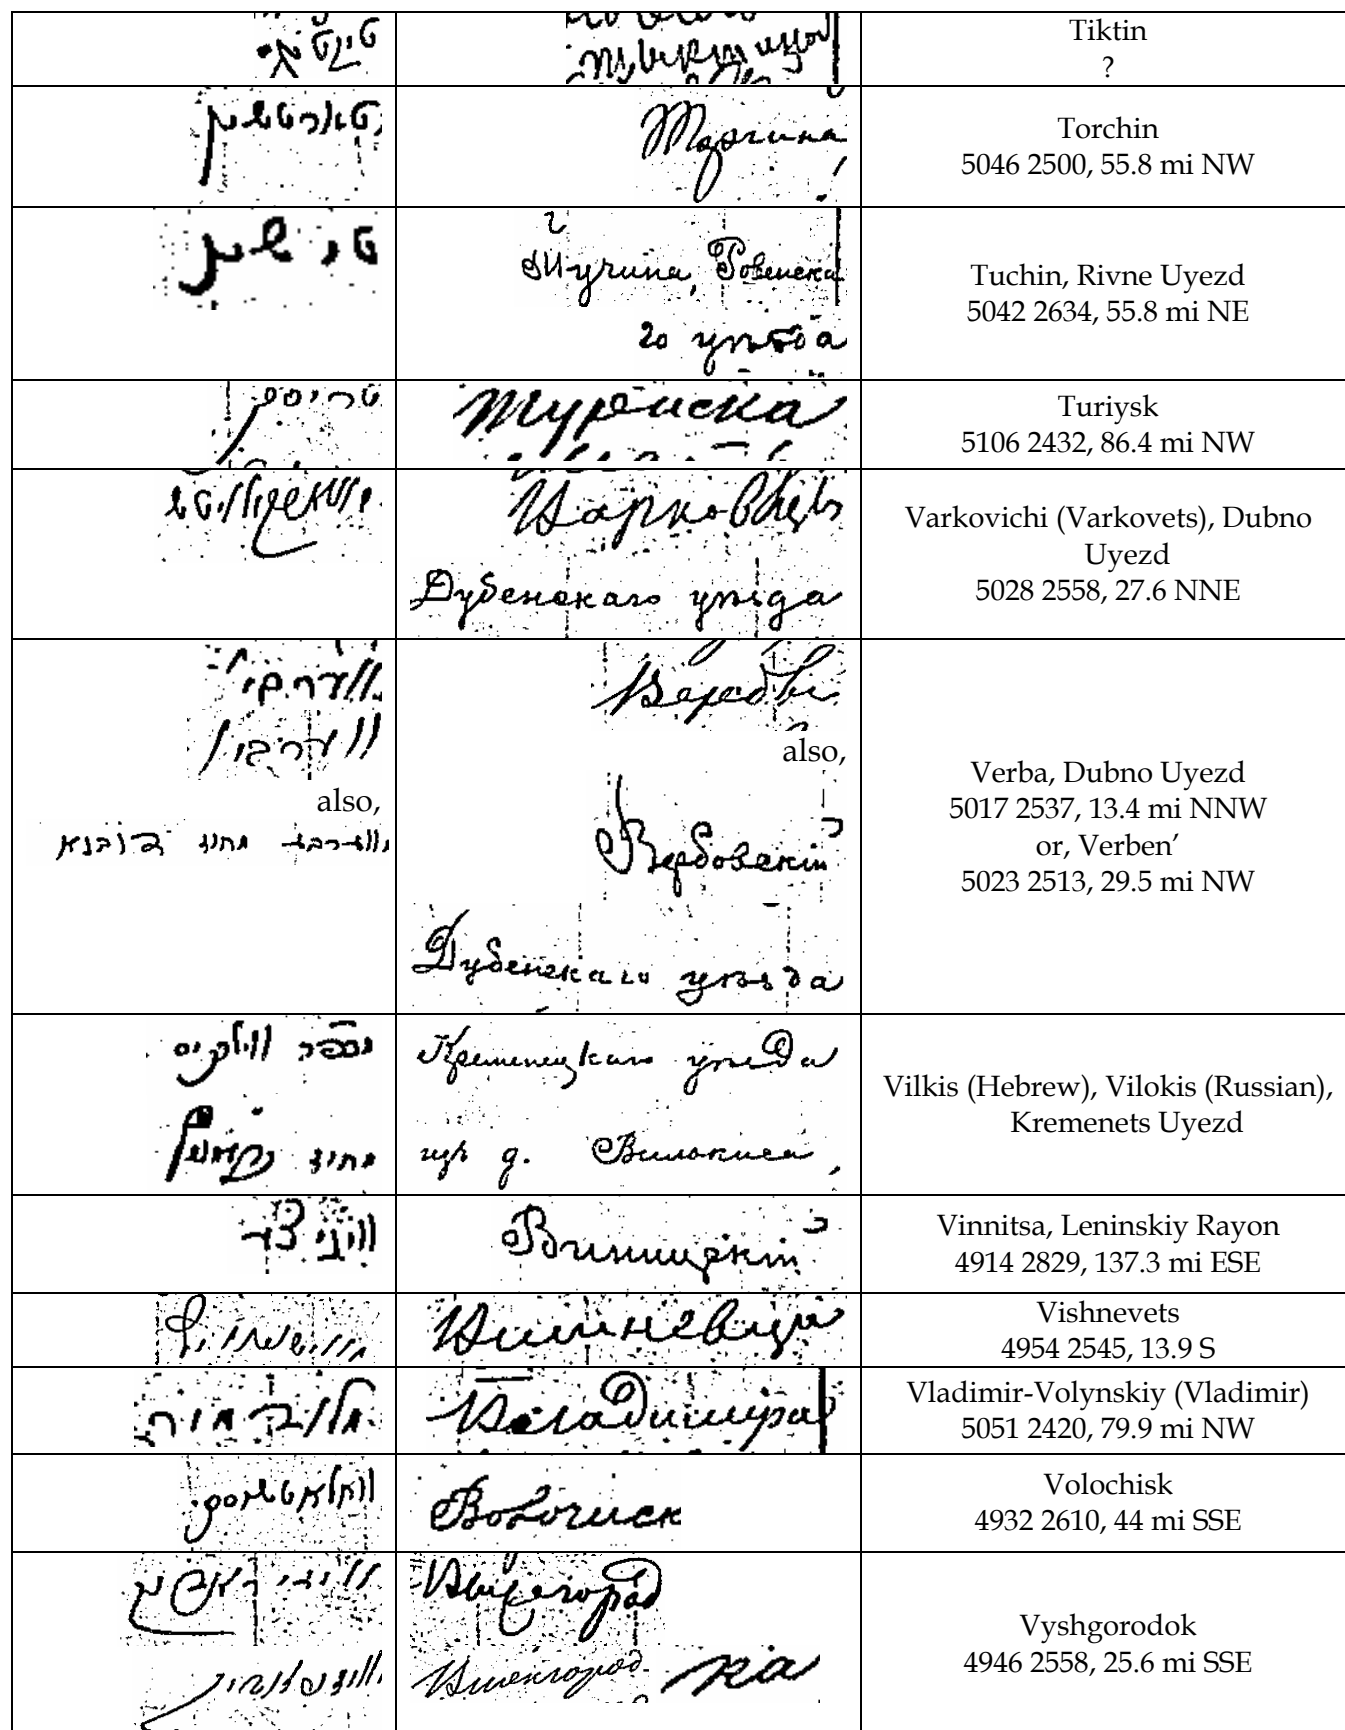 Tiktin
?
טארטשין
Торчина
Torchin
5046 2500, 55.8 mi NW
טושין
Тучина, Ровенска
го уѣзда
Tuchin, Rivne Uyezd
5042 2634, 55.8 mi NE
טריסק
Турійска
Turiysk
5106 2432, 86.4 mi NW
Варковецъ
Дубенскаго уѣзда
Varkovichi (Varkovets), Dubno
Uyezd
5028 2558, 27.6 NNE
also,
מחוז דובנא
also,
Вербовскій
Дубенскаго уѣзда
Verba, Dubno Uyezd
5017 2537, 13.4 mi NNW
or, Verben’
5023 2513, 29.5 mi NW
מכפר ווילקיס
מחוז
Кременецкаго уѣзда
изъ д. Вилокиса,
Vilkis (Hebrew), Vilokis (Russian),
Kremenets Uyezd
Виницкій
Vinnitsa, Leninskiy Rayon
4914 2829, 137.3 mi ESE
Вишневца
Vishnevets
4954 2545, 13.9 S
Владиміра
Vladimir-Volynskiy (Vladimir)
5051 2420, 79.9 mi NW
וואלאטשיסק
Волочиск
Volochisk
4932 2610, 44 mi SSE
ка
Vyshgorodok
4946 2558, 25.6 mi SSE